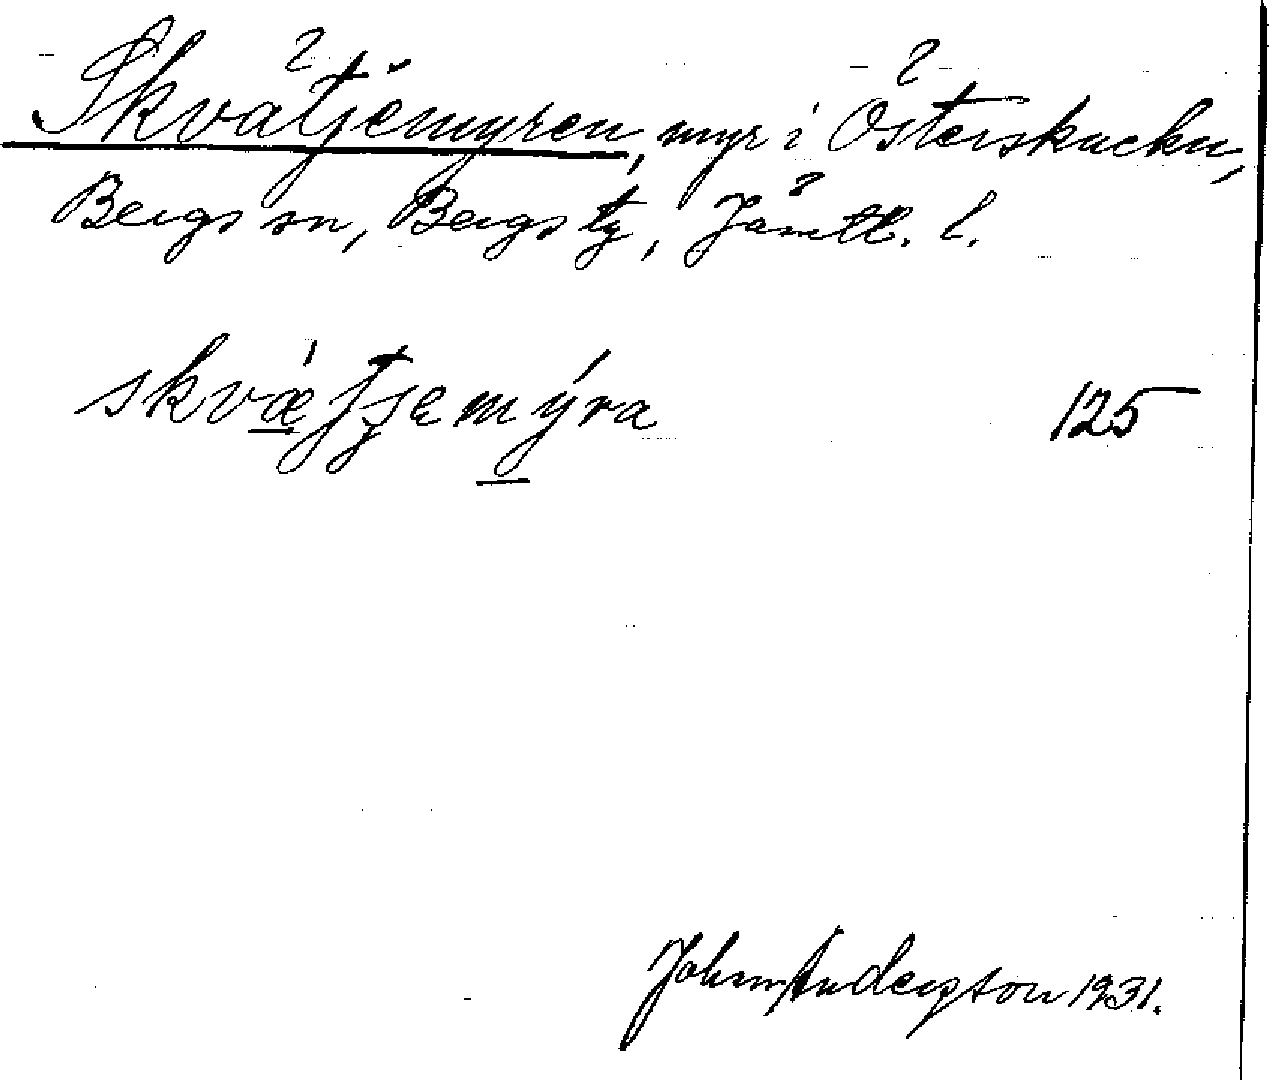 Skvätjemyren, myr i Österskucku,
Bergs sn, Bergs tg, Jämtl. l.
skvǽ̱ʃʃemýra 125
John Anderson 1931.